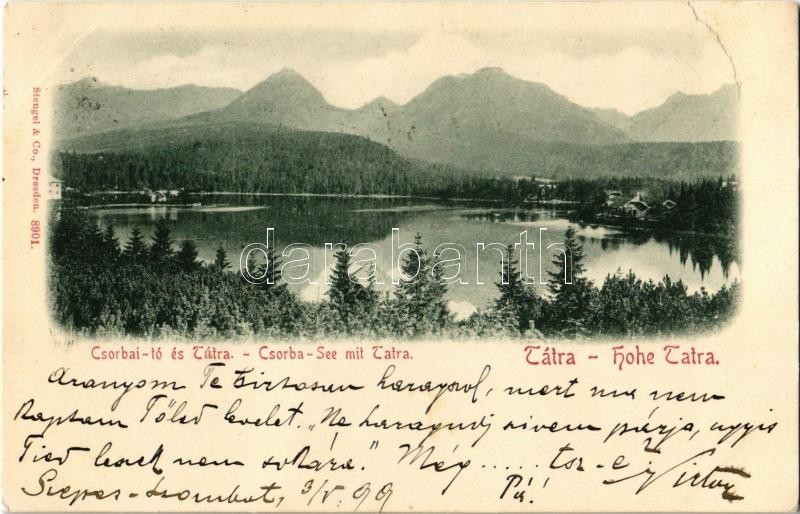 Stengel & Co., Dresden. 8901.
darabanth
Csorbai-tó és Tátra. - Csorba-See mit Tatra.
Tátra - Hohe Tatra.
Aranyom Te biztosan haragsol, mert ma nem
kaptam Tőled levelet. "Ne haragudj szivem párja, ugyis
Tied leszek nem sokára." Még ..... tsz-e Victor
Szepes-Szombat, 3/V. 99 Pá!